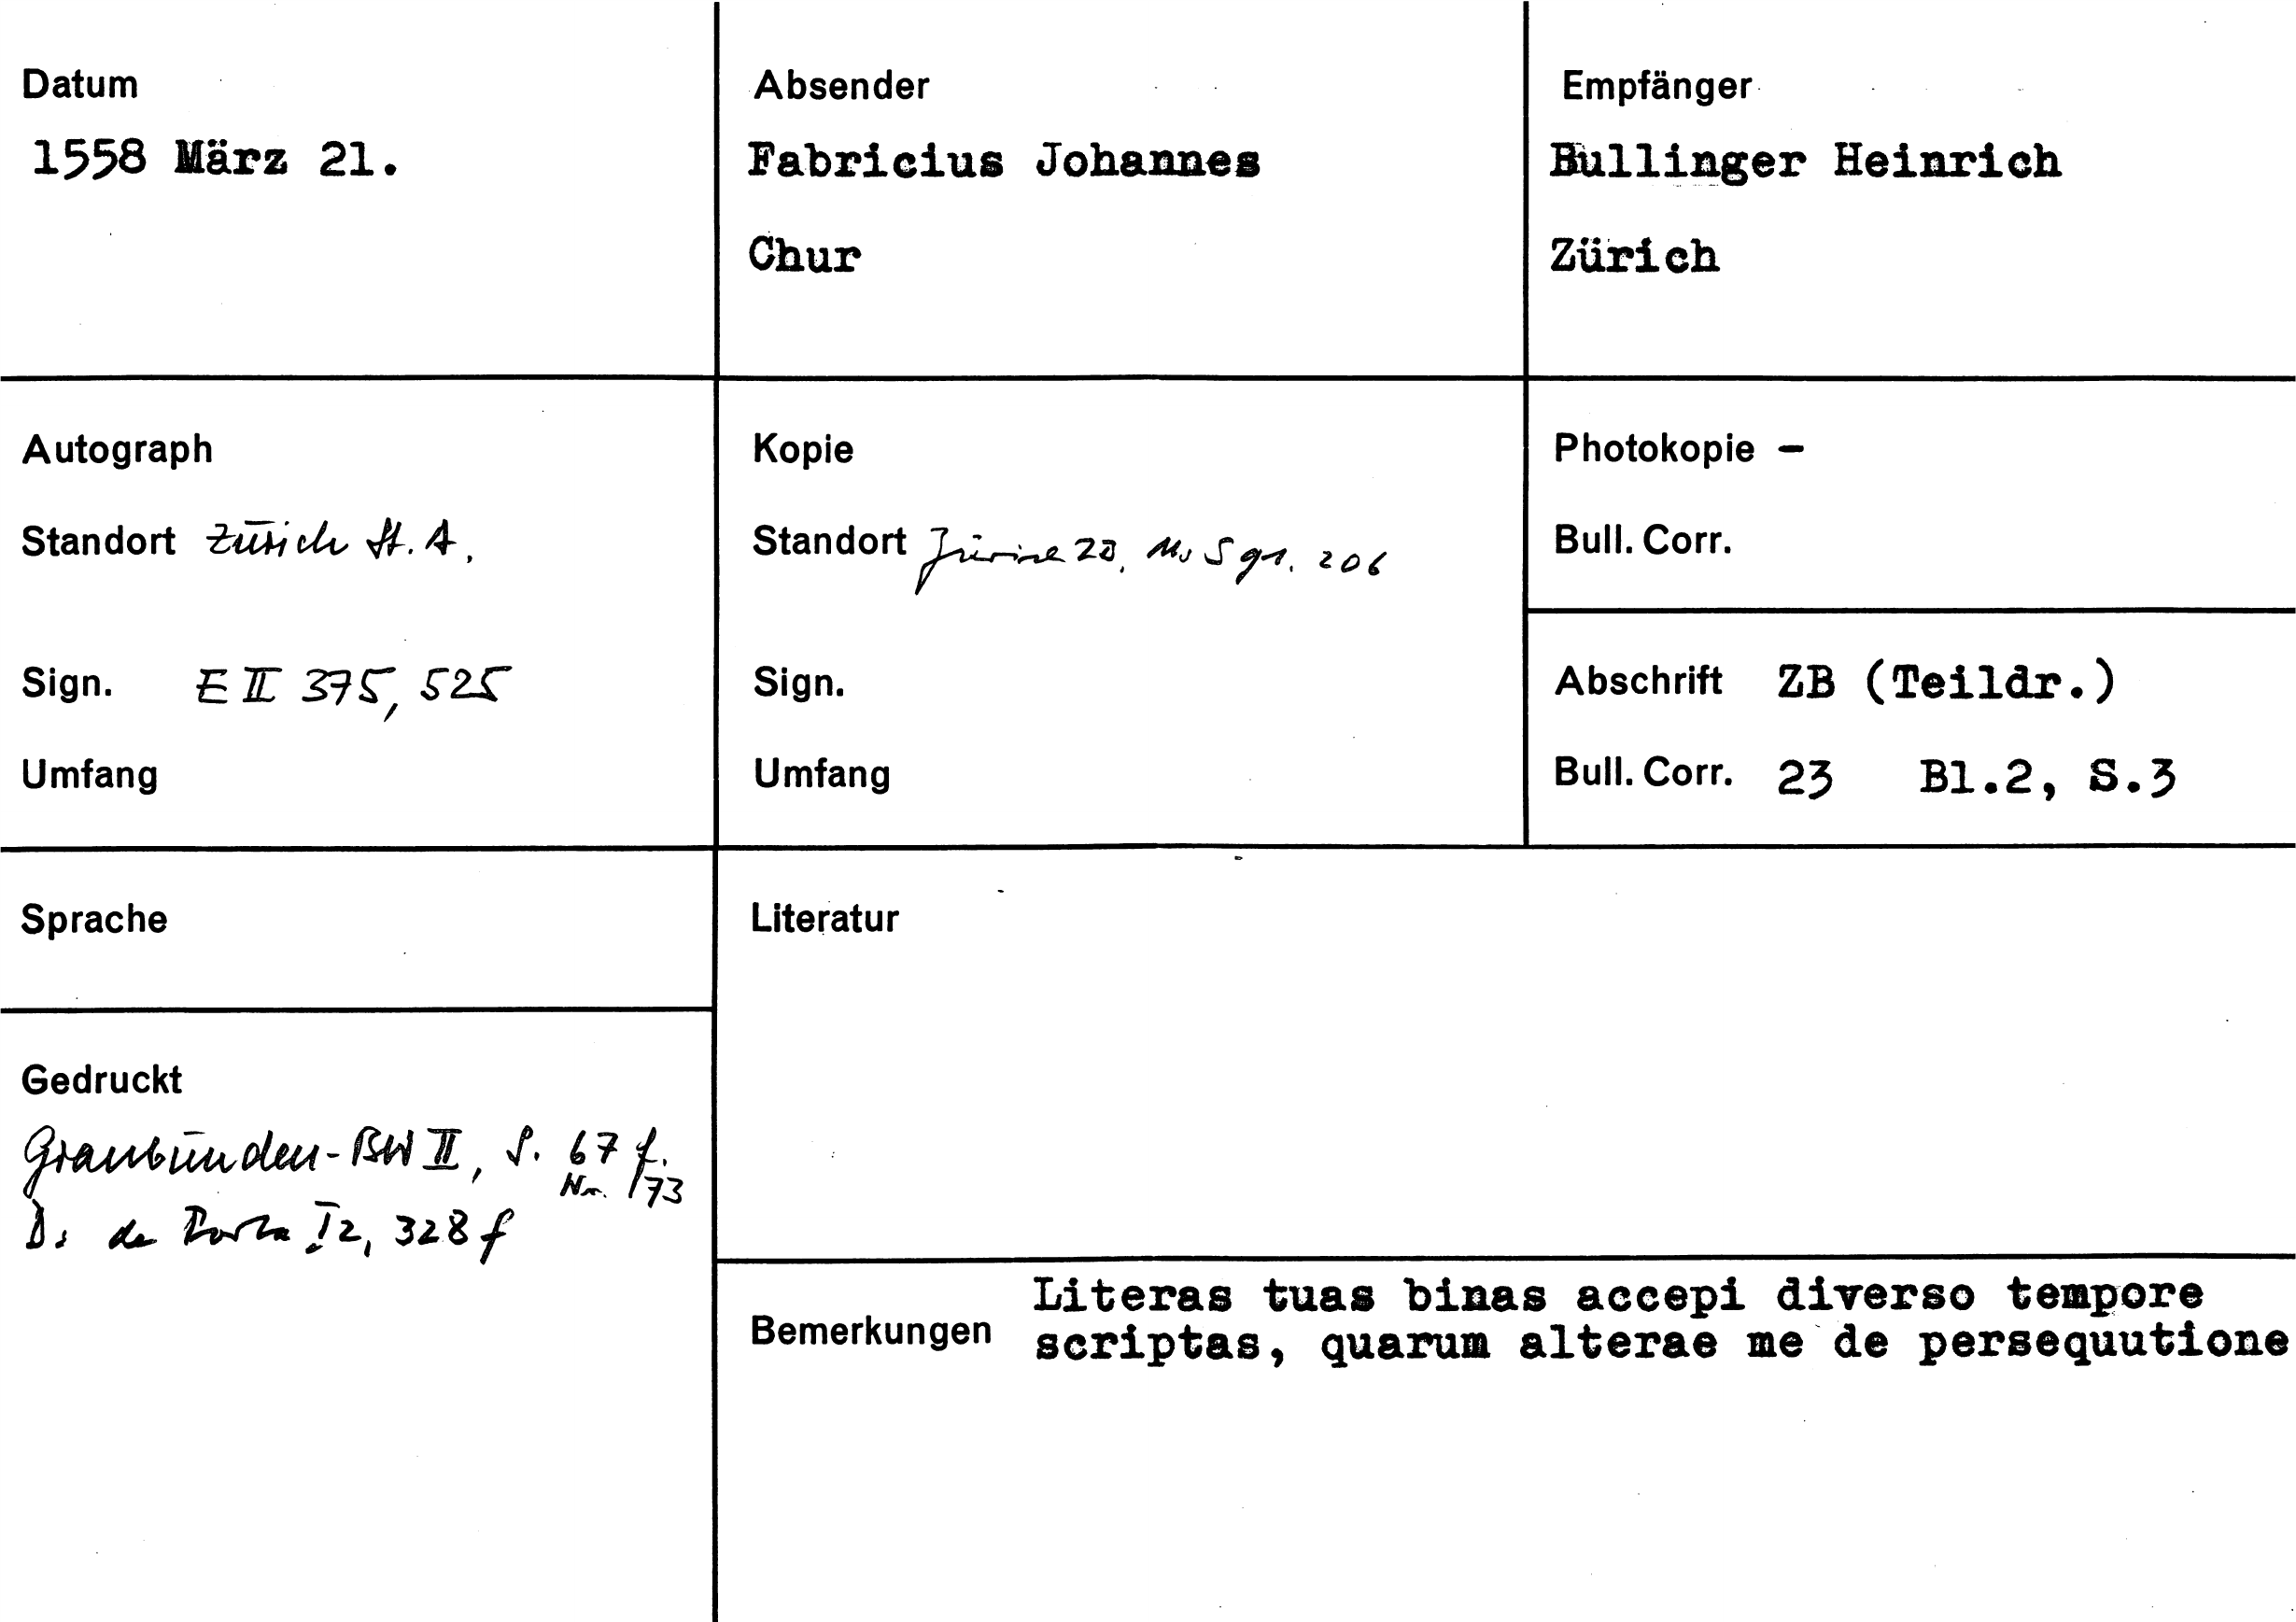 Datum
1558 März 21.
Absender
Fabricius Johannes
Chur
Empfänger
Bullinger Heinrich
Zürich
Autograph
Standort Zürich St. A.
Sign. E II 375, 525
Umfang
Kopie
Standort Zürich ZB, Ms S 206
Sign.
Umfang
Photokopie –
Bull. Corr.
Abschrift ZB (Teildr.)
Bull. Corr. 23 Bl.2, S.3
Sprache
Literatur
Gedruckt
Graubünden-BW II, S. 67 f.
Nr. 73
D. de Porta I2, 328 f
Bemerkungen
Literas tuas binas accepi diverso tempore
scriptas, quarum alterae me de persequutione